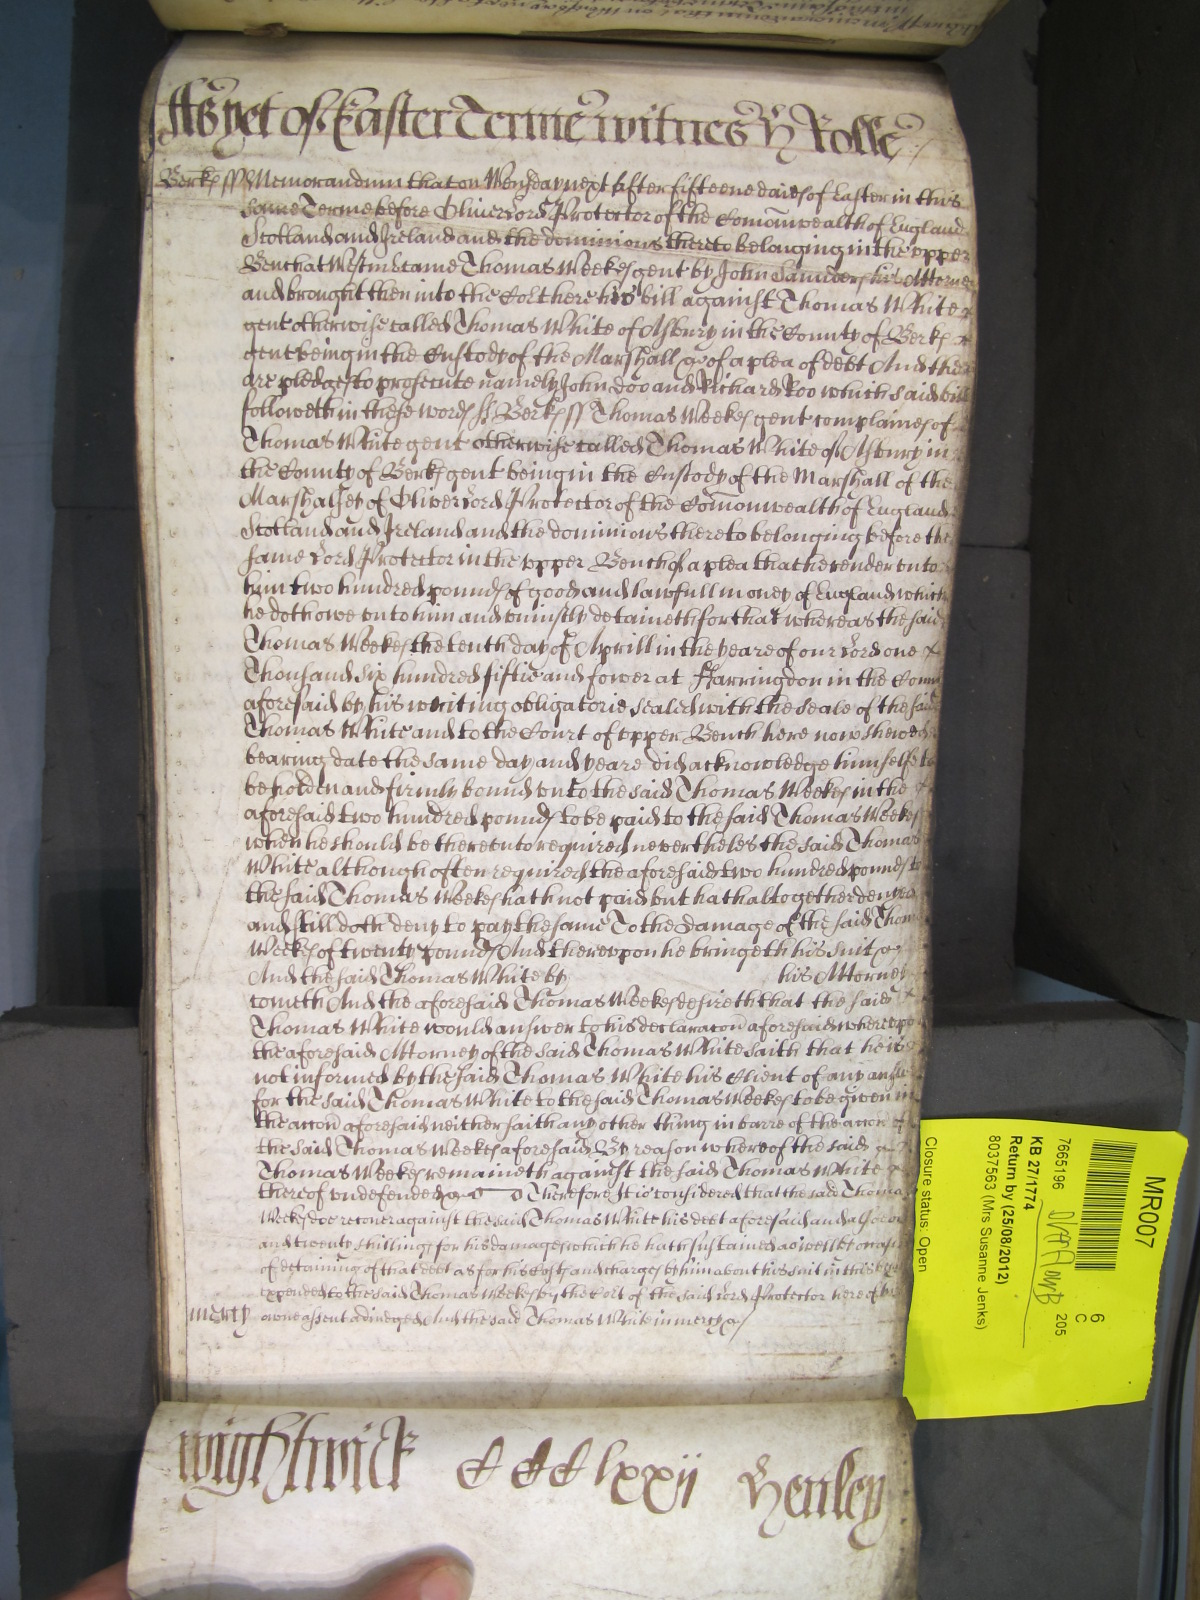 As yet of Easter Terme witnes H Rolle
Berks ss Memorandum that on Wensday next after fifteene daies of Easter in this
same Terme before Oliver Lord Protector of the Comonwealth of England
Scotland and Ireland and the dominions thereto belonging in the upper
Bench at Westm came Thomas Weekes gent by John Saunders his Attorney
and brought then into the Cort here his bill against Thomas White
gent otherwise called Thomas White of Asbury in the County of Berks
gent being in the Custody of the Marshall &c of a plea of debt And there
are pledges to prosecute namely John Doo and Richard Roo which said bill
followeth in these words ss Berks ss Thomas Weekes gent complaines of
Thomas White gent otherwise called Thomas White of Asbury in
the County of Berks gent being in the Custody of the Marshall of the
Marshalsey of Oliver Lord Protector of the Comonwealth of England
Scotland and Ireland and the dominions thereto belonging before the
same Lord Protector in the upper Bench of a plea that he render unto
him two hundred pounds of good and lawfull money of England which
he doth owe unto him and uniustly detaineth for that whereas the said
Thomas Weekes the tenth day of Aprill in the yeare of our Lord one
Thousand six hundred fiftie and fower at Farringdon in the County
aforesaid by his writing obligatorie sealed with the seale of the said
Thomas White and to the Court of upper Bench here now shewed
bearing date the same day and yeare did acknowledge himselfe to
be holden and firmly bound unto the said Thomas Weekes in the
aforesaid two hundred pounds to be paid to the said Thomas Weekes
when he should be thereunto required neverthelesse the said Thomas
White although often required the aforesaid two hundred pounds to
the said Thomas Weekes hath not paid but hath altogether denyed
and still doth deny to pay the same To the damage of the said Thomas
Weekes of twenty pounds And thereupon he bringeth his suit &c
And the said Thomas White by his Attorney
cometh And the aforesaid Thomas Weekes desireth that the said
Thomas White would answer to his declaracon aforesaid whereupon
the aforesaid Attorney of the said Thomas White saith that he is
not informed by the said Thomas White his Client of any answer
for the said Thomas White to the said Thomas Weekes to be given in
the accon aforesaid neither saith any other thing in barre of the accon of
the said Thomas Weekes aforesaid By reason whereof the said
Thomas Weekes remaineth against the said Thomas White
thereof undefended &c Therefore It is considered that the said Thomas
Weekes doe recover against the said Thomas White his debt aforesaid and also
and twenty shillings for his damages which he hath sustained aswell
of detaining of that debt as for his Costs and charges by him about his suit in this behalf
expended to the said Thomas Weekes by the Cort of the said Lord Protector here of his
mercy owne assent adiudged And the said Thomas White in mercy &c
Wightwick CCClxxii Henley
MR007
6
C
205
7665196
KB 27/1774
Return by (25/08/2012)
8037563 (Mrs Susanne Jenks)
Closure status: Open